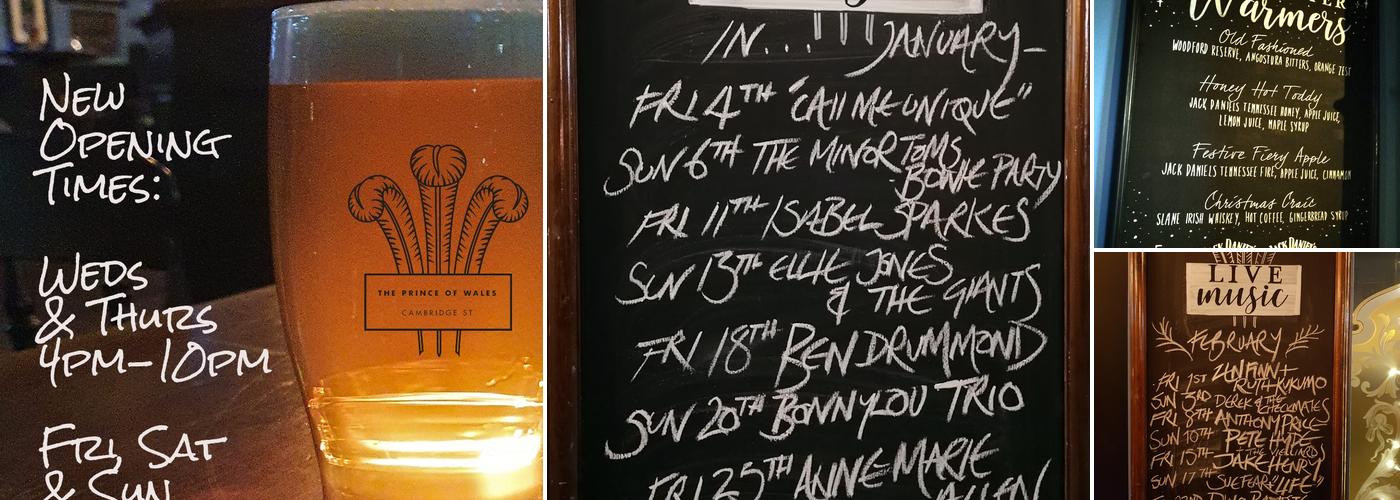 New
Opening
Times:
Weds
& Thurs
4pm-10pm
Fri, Sat
& Sun
THE PRINCE OF WALES
CAMBRIDGE ST
IN... JANUARY-
FRI 4TH "CAll ME UNIQUE"
SUN 6TH THE MINOR TOMS
BOWIE PARTY
FRI 11TH ISABEL SPARKES
SUN 13TH ELLIE JONES
& THE GIANTS
FRI 18TH BEN DRUMMOND
SUN 20TH BONNYLOU TRIO
FRI 25TH ANNE MARIE
ALLEN
Warmers
Old Fashioned
WOODFORD RESERVE, ANGOSTURA BITTERS, ORANGE ZEST
Honey Hot Toddy
JACK DANIELS TENNESSEE HONEY, APPLE JUICE,
LEMON JUICE, MAPLE SYRUP
Festive Fiery Apple
JACK DANIELS TENNESSEE FIRE, APPLE JUICE, CINNAMON
Christmas Craic
SLANE IRISH WHISKEY, HOT COFFEE, GINGERBREAD SYRUP
LIVE
music
FEBRUARY
FRI 1ST FINN +
RUTH KUKUMO
SUN 3RD DEREK & THE
CHECKMATES
FRI 8TH ANTHONY PRICE
SUN 10TH PETE HYDE
FRI 15TH JAKE HENRY
SUN 17TH SUE FEAR "LIFE"